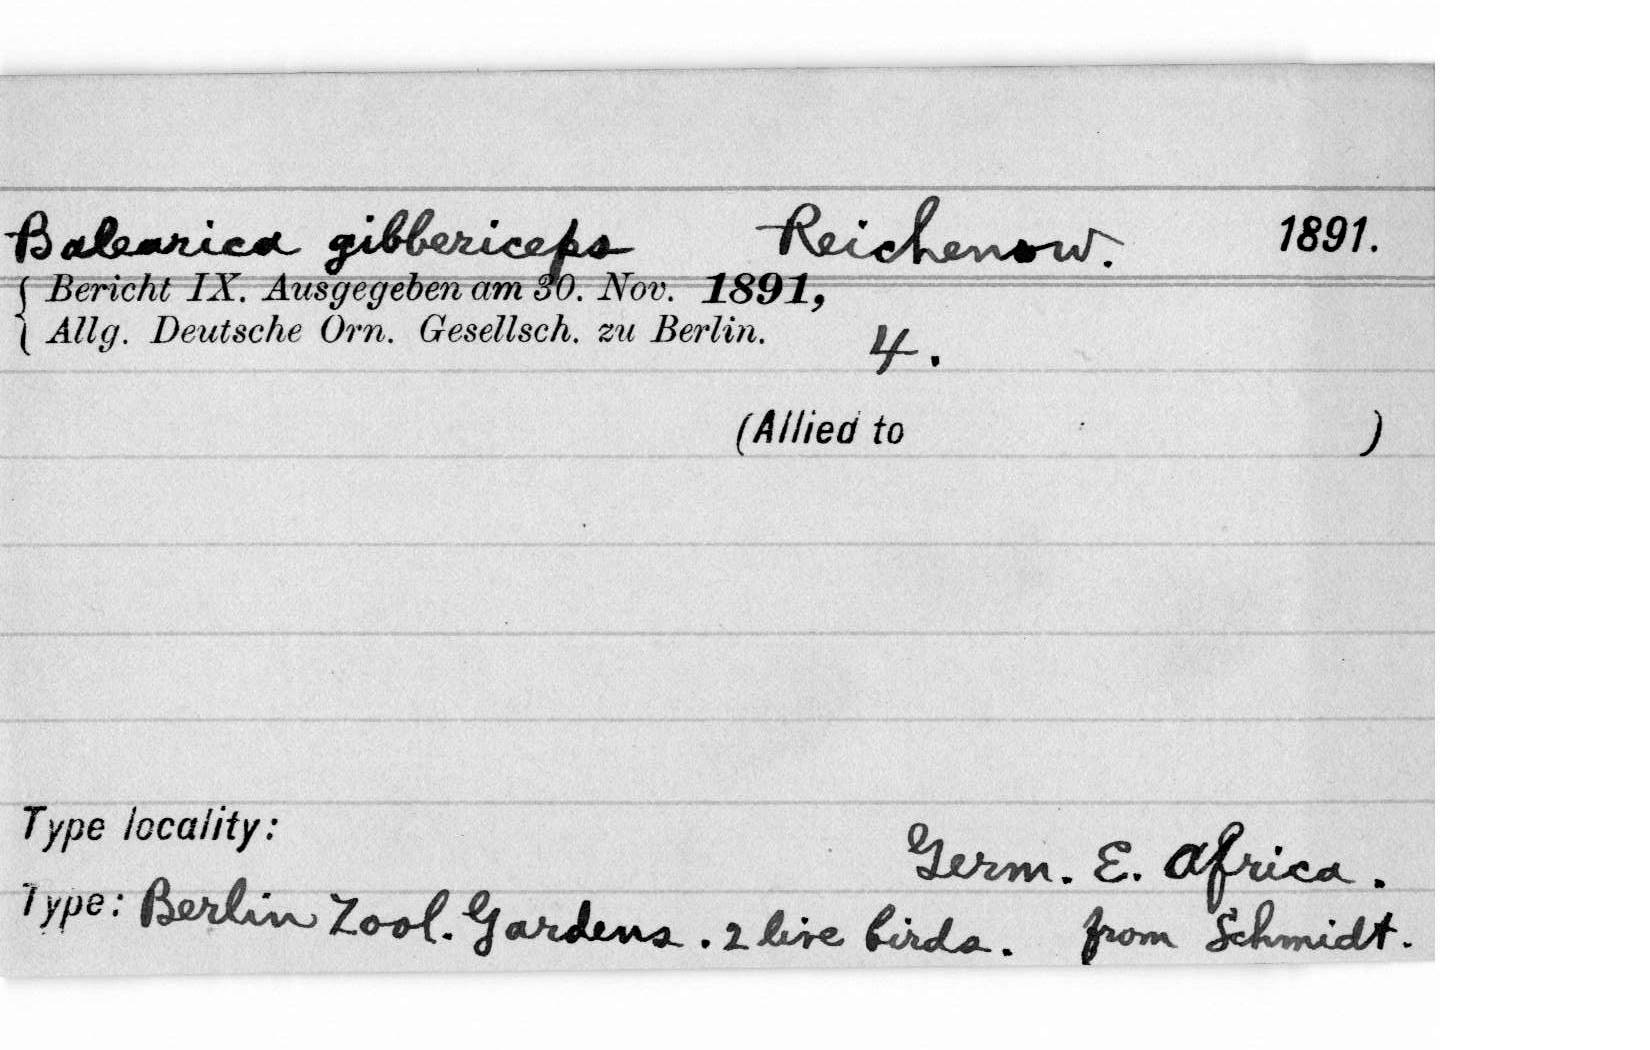 Balearica gibbericeps Reichenow. 1891.
Bericht IX. Ausgegeben am 30. Nov. 1891,
Allg. Deutsche Orn. Gesellsch. zu Berlin. 4.
(Allied to )
Type locality: Germ. E. Africa.
Type: Berlin Zool. Gardens. 2 live birds. from Schmidt.